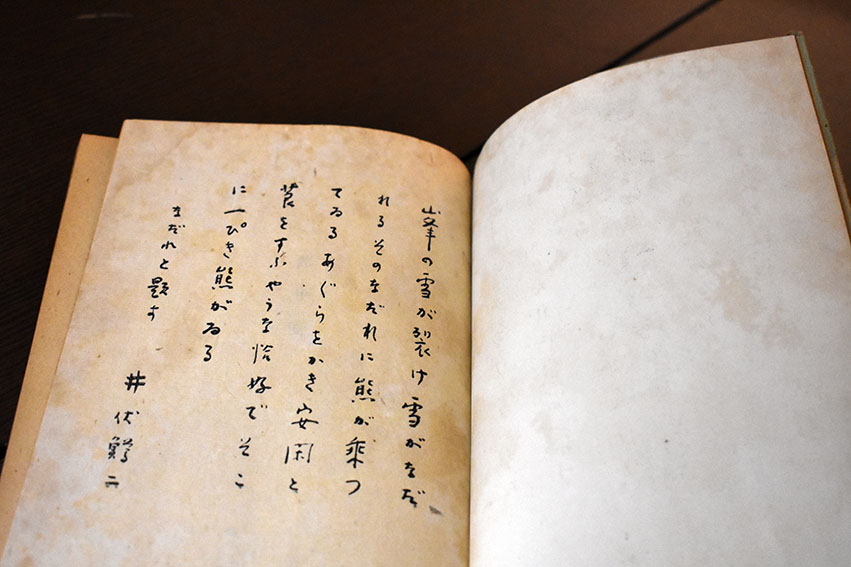 峯の雪が裂け雪がなだ
れるそのなだれに熊が乗つ
てゐるあぐらをかき安閑と
莨をすふやうな恰好でそこ
に一ぴき熊がゐる
なだれと題す
井伏鱒二